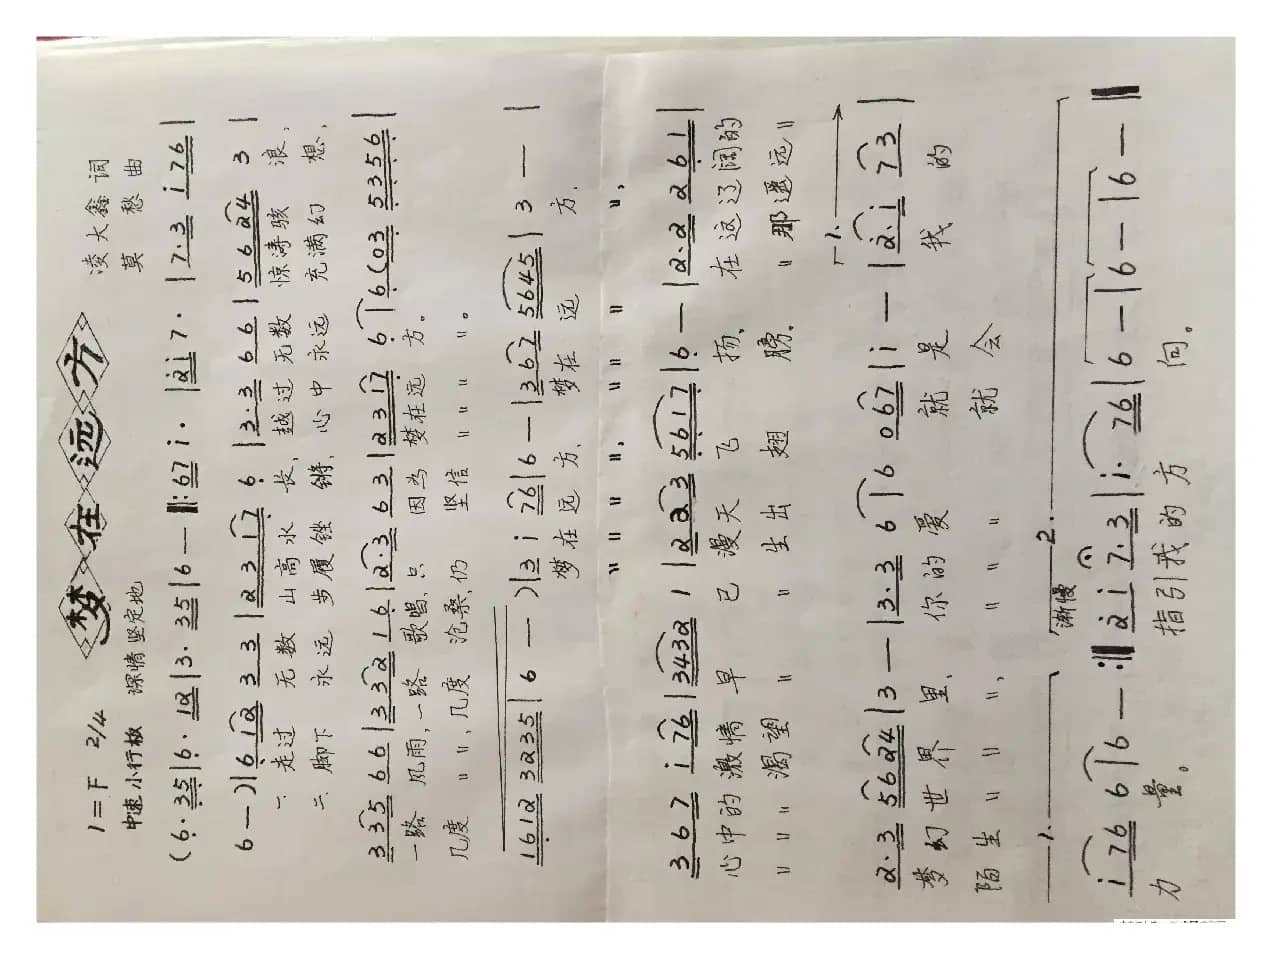 梦在远方
1=F 2/4 凌大鑫 词
中速 小行板 深情坚定地 莫愁 曲
(6·35|6·12|3·35|6—‖:67i·|2i7·|7·3 i76|
6—)|612 33|2317 6|3·3 66|5624 3|
一.走过 无数 山高水长,越过无数 惊涛骇浪,
二.脚下 永远 步履铿锵,心中永远 充满幻想,
335 66|332 16|2·3 63|2317 6|6(03 5356|
一路风雨,一路歌唱,只因为 梦在远方。
几度〃〃,几度沧桑,仍坚信 〃〃〃〃。
1612 3235|6—)|3i 76|6—|367 5645|3—|
梦在远方, 梦在远方,
〃〃〃〃, 〃〃〃〃,
367 i76|3432 1|223 5617|6—|2·2 261|
心中的激情早已漫天飞扬,在这辽阔的
〃〃〃渴望〃〃生出翅膀,〃那遥远〃
1.
2·3 5624|3—|3·3 6|6 067|i—|2·i 73|
梦幻世界里,你的爱就是我的
陌生〃〃〃,〃〃〃就会
1. 渐慢 2.
i76 6|6—:‖2i 7·3|i·76|6—|6—|6—‖
力量。指引我的方向。